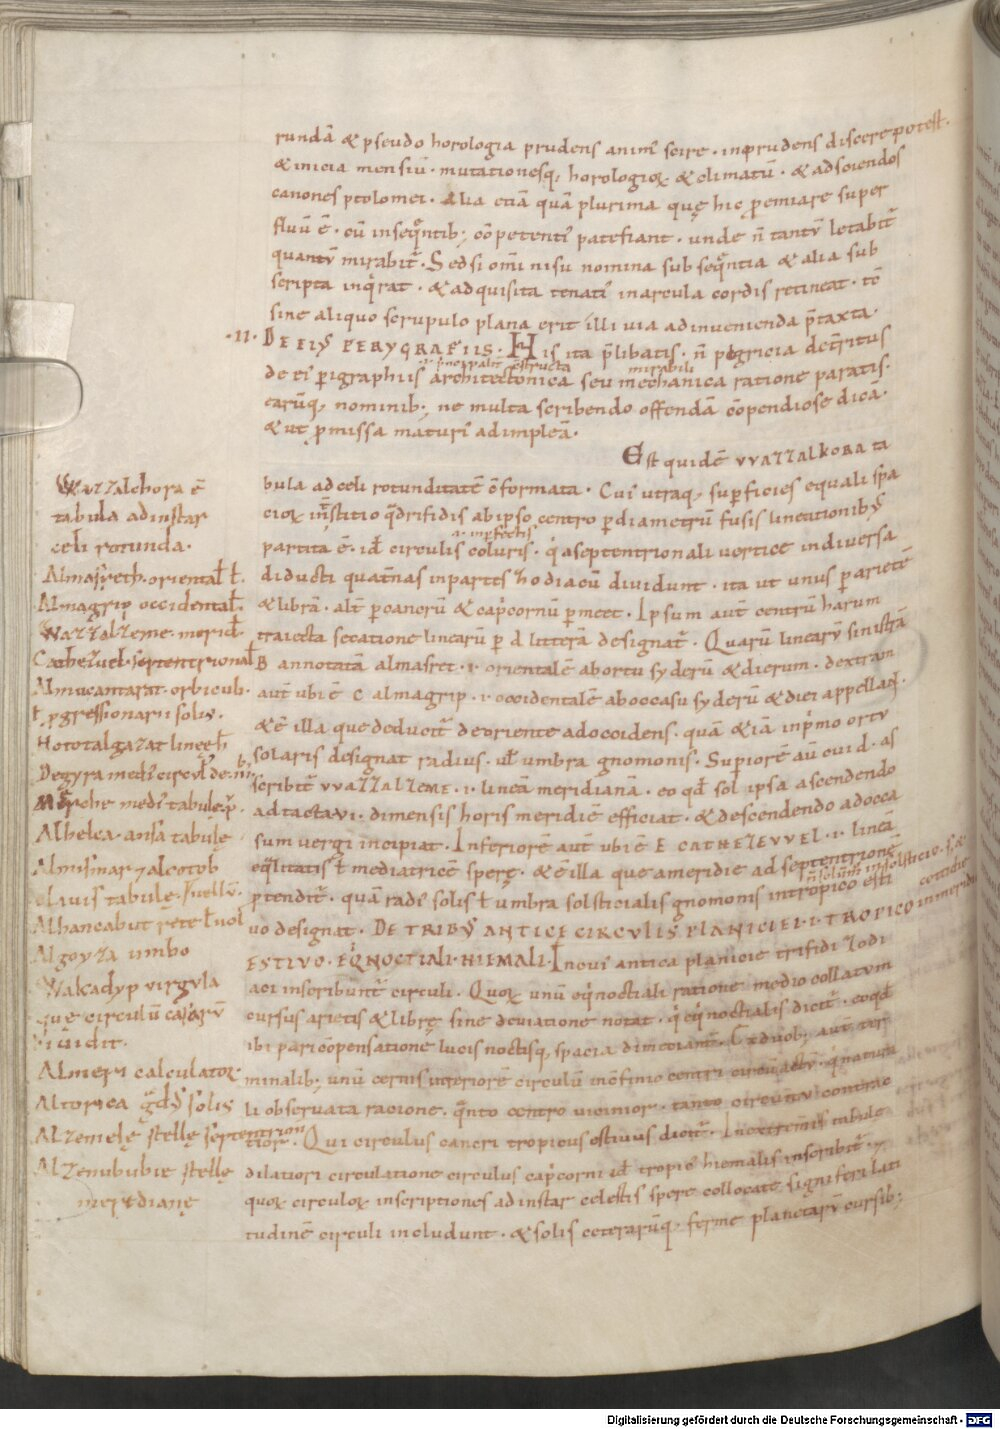 rundã & pseudo horologia prudens animꝰ scire · inprudens discere potest·
& inicia mensiũ · mutationesq; horologioꝝ & climatũ · & adsciendos
canones ptolomei · Alia etiã quã plurima quę hic p̱emiare super
fluũ ẽ · cũ inseqͤntib; cõpetentꝰ patefiant · unde ñ tantũ letabit᷑
quantũ mirabit᷑ · Sed si omꝰ nisu nomina subseqͤntia & alia sub
scripta inqͥrat · & adquisita tenatꝰ inarcula cordis retineat · tc̃
sine aliquo scrupulo plana erit illi via ad inuenienda p̃taxta·
·II· DE EIꝰ PERYGRAFIIS · HIs ita p̃libatis · ñ pigricia det̃ritus
·i· principalit᷑ cõstructa mirabili
de eiꝰ p̱igraphiis architectonica seu mechanica ratione paratis·
earũq; nominib; ne multa scribendo offendã cõpendiose dicã·
& ut p̱missa maturꝰ adimpleã·
Est quidẽ VVAZZALKORA ta
bula ad celi rotunditatẽ c̃formata · Cuiꝰ utraq; sup̱ficies equali spa
cioꝝ int̃stitio qͣdrifidis ab ipso centro p̱ diametrũ fusis linctionibꝰ
·i· inp̱fectis
partita ẽ · id̃ circulis coluris · qͥ a septentrionali uertice in diuersa
diducti quat̃nas in partes zodiacũ diuidunt · ita ut unus p̱ arietẽ
& librã · alt̃ p̱ cancrũ & capͥcornũ p̱meet · Ipsum aut̃ centrũ harum
traiecta secatione linearũ p̱ d litterã designat᷑ · Quarũ linearũ sinistrã
B annotatã almasret · i · orientalẽ ab ortu syderũ & dierum · dextram
aut̃ ubi ẽ C almagrip · i · occidentalẽ ab occasu syderũ & diei appellaꝗ·
& ẽ illa que deducit᷑ de oriente ad occidens · quã & iã inpͥmo ortu
solaris designat radius · ul̃ umbra gnomonis · Superiorẽ aũ cui d · as
scribit᷑ VVAZZALZEME · i · lineã meridianã · eo qd̃ sol ipsa ascendendo
ad tacta VI · dimensis horis meridiẽ efficiat · & descendendo ad occa
sum uergi incipiat · Inferiorẽ aut̃ ubi ẽ E CATHEZEVVEL · i · lineã
eqͣlitatis ł mediatricẽ sperę · & ẽ illa que a meridie ad septentrionẽ
p̱tendit᷑ · quã radiꝰ solis ł umbra solsticialis gnomonis in tropico esti
uo designat · DE TRIBꝰ ANTICE CIRCVLIS PLANICIEI · I · TROPICO
ESTIVO · EQͥNOCTIALI · HIEMALI · In cuiꝰ antica planicie trifidi zodi
aci inscribunt᷑ circuli · Quoꝝ unũ eqͥnoctiali ratione medio collatum
cursus arietis & librę sine deuiatione notat · qͥ eqͥnoctialis dicit᷑ · eo qd̃
ibi pari cõpensatione lucis noctisq; spacia dimetiant᷑ · Ex duob; aut̃ ter
minalib; unũ cernis interiorẽ circulũ in cõfinio centri circũactũ · qͥ natura
li obseruata racione · qͣnto centro uicinior · tanto circũitu contrac
tior · Qui circulus cancri tropicus estiuus dicit᷑ · In extremis tabule
dilatiori circulatione circulus capͥcorni id̃ tropicꝰ hiemalis inscribit᷑ ·
quoꝝ circuloꝝ inscriptiones ad instar celestis spere collocate signiferi lati
tudinẽ circuli includunt · & solis ceterarũq; ferme planetarũ cursib;
Wazzalchora ẽ
tabula ad instar
celi rotunda·
Almasreth · oriental̃ ł·
Almagrip occidental̃·
Wazzalzeme · merid̃
Cathezuel · septentrional̃
Almucantarat · orbicub·
ł p̱gressionarii solis·
Hototalgazat lineę ł
Degyra mediꝰ circul̃
Almerche mediꝰ tabulę
Alhelca · ansa tabulę
Almismar ⁊ alcotob
clauis tabule · s uellũ·
Alhancabut rete ł uol
Algoyza umbo
Walcadyp uirgula
que circulũ casarũ
diuidit·
Almeri calculatoꝝ
Altorica gͣdꝰ solis
Alzemelę stellę septentrion
Alzenububie stellę
meridianę
Digitalisierung gefördert durch die Deutsche Forschungsgemeinschaft - DFG